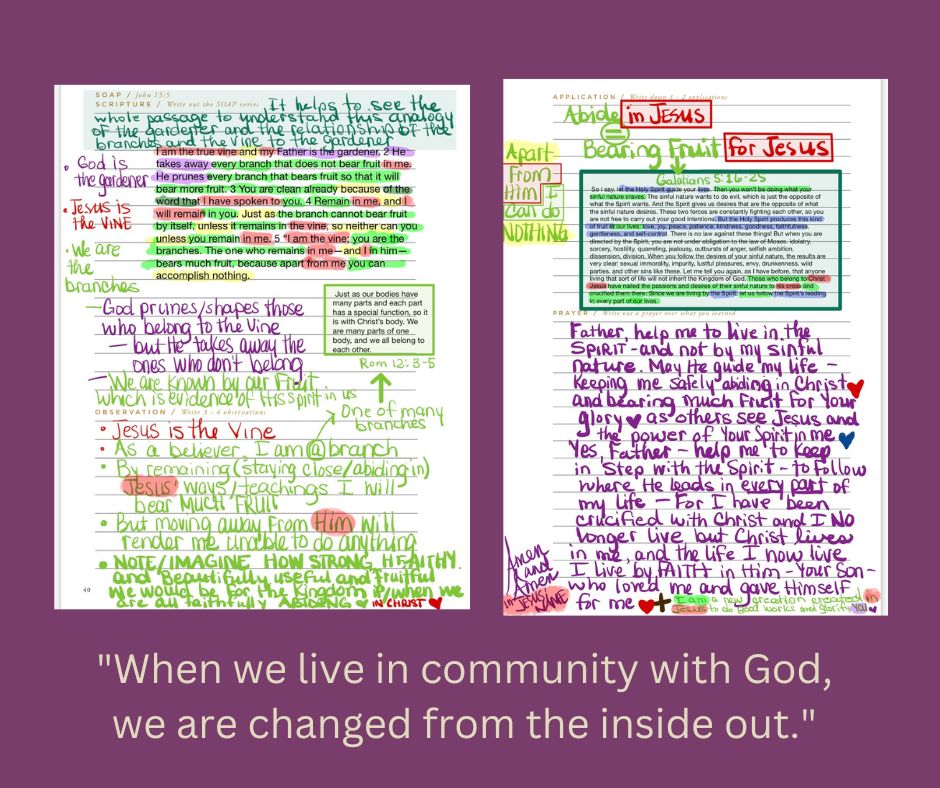 SOAP / John 15:5
SCRIPTURE / Write out the SOAP verses
It helps to see the
whole passage to understand this analogy
of the gardener and the relationship of the
branches and the vine to the gardener
I am the true vine and my Father is the gardener. 2 He
takes away every branch that does not bear fruit in me.
He prunes every branch that bears fruit so that it will
bear more fruit. 3 You are clean already because of the
word that I have spoken to you. 4 Remain in me, and I
will remain in you. Just as the branch cannot bear fruit
by itself, unless it remains in the vine, so neither can you
unless you remain in me. 5 “I am the vine; you are the
branches. The one who remains in me—and I in him—
bears much fruit, because apart from me you can
accomplish nothing.
• God is
the gardener
• Jesus is
the VINE
• We are
the
branches
—God prunes/shapes those
who belong to the Vine
— but He takes away the
ones who don't belong.
— We are known by our Fruit
which is evidence of His spirit in us
Just as our bodies have
many parts and each part
has a special function, so it
is with Christ's body. We
are many parts of one
body, and we all belong to
each other.
Rom 12:3-5
One of many
branches
OBSERVATION / Write 3 - 4 observations
• Jesus is the Vine
• As a believer, I am @ branch
• By remaining (staying close/abiding in)
Jesus' ways/teachings I will
bear MUCH FRUIT
• But moving away from Him will
render me unable to do anything
• NOTE/IMAGINE HOW STRONG, HEALTHY
and Beautifully useful and fruitful
we would be for the Kingdom if/when we
are all faithfully ABIDING ♥ IN CHRIST ♥
40
APPLICATION / Write down 1 - 2 applications
Abide in JESUS
=
Bearing Fruit for Jesus
Apart
From
Him I
Can do
NOTHING
Galatians 5:16-25
So I say, let the Holy Spirit guide your lives. Then you won't be doing what your
sinful nature craves. The sinful nature wants to do evil, which is just the opposite of
what the Spirit wants. And the Spirit gives us desires that are the opposite of what
the sinful nature desires. These two forces are constantly fighting each other, so you
are not free to carry out your good intentions. But the Holy Spirit produces this kind
of fruit in our lives: love, joy, peace, patience, kindness, goodness, faithfulness,
gentleness, and self-control. There is no law against these things! But when you are
directed by the Spirit, you are not under obligation to the law of Moses. idolatry,
sorcery, hostility, quarreling, jealousy, outbursts of anger, selfish ambition,
dissension, division. When you follow the desires of your sinful nature, the results are
very clear: sexual immorality, impurity, lustful pleasures, envy, drunkenness, wild
parties, and other sins like these. Let me tell you again, as I have before, that anyone
living that sort of life will not inherit the Kingdom of God. Those who belong to Christ
Jesus have nailed the passions and desires of their sinful nature to his cross and
crucified them there. Since we are living by the Spirit, let us follow the Spirit's leading
in every part of our lives.
PRAYER / Write out a prayer over what you learned
Father, help me to live in the
SPIRIT -and not by my sinful
nature. May He guide my life -
keeping me safely abiding in Christ ♥
and bearing much fruit for Your
glory ♥ as others see Jesus and
the power of Your Spirit in me ♥
Yes, Father - help me to keep
in step with the Spirit - to follow
where He leads in every part of
my life - For I have been
crucified with Christ and I NO
longer live but Christ lives
in me, and the life I now live
I live by FAITH in Him - Your Son -
who loved me and gave Himself
for me ♥ +
Amen
and
Amen
in JESUS' NAME
I am a new creation created in
Jesus to do good works and glorify YOU ♥
"When we live in community with God,
we are changed from the inside out."